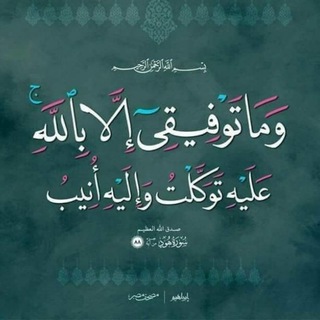 بِسْمِ اللَّهِ الرَّحْمَنِ الرَّحِيمِ
وَمَا تَوْفِيقِىٓ إِلَّا بِٱللَّهِۚ
عَلَيْهِ تَوَكَّلْتُ وَإِلَيْهِ أُنِيبُ
صدق الله العظيم
سُورَةُ هُودٍ ٨٨
مصحف مصر